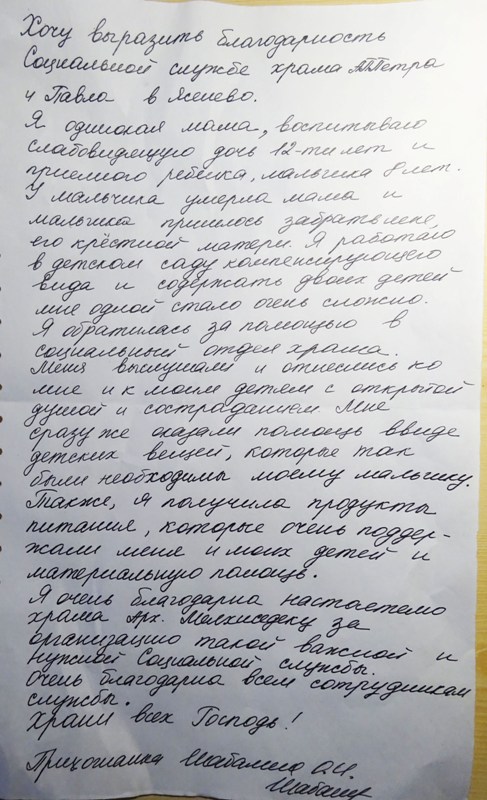 Хочу выразить благодарность
Социальной службе храма Петра
и Павла в Ясенево.
Я одинокая мама, воспитываю
слабовидящую дочь 12-ти лет и
приемного ребёнка, мальчика 8 лет.
У мальчика умерла мама и
мальчика пришлось забрать мне,
его крёстной матери. Я работаю
в детском саду компенсирующего
вида и содержать двоих детей
мне одной стало очень сложно.
Я обратилась за помощью в
социальный отдел храма.
Меня выслушали и отнеслись ко
мне и к моим детям с открытой
душой и состраданием Мне
сразу же оказали помощь ввиде
детских вещей, которые так
были необходимы моему мальчику.
Также, я получила продукты
питания, которые очень поддер-
жали меня и моих детей и
материальную помощь.
Я очень благодарна настоятелю
храма Арх. Мелхиседеку за
организацию такой важной и
нужной Социальной службы.
Очень благодарна всем сотрудникам
службы.
Храни всех Господь!
Прихожанка